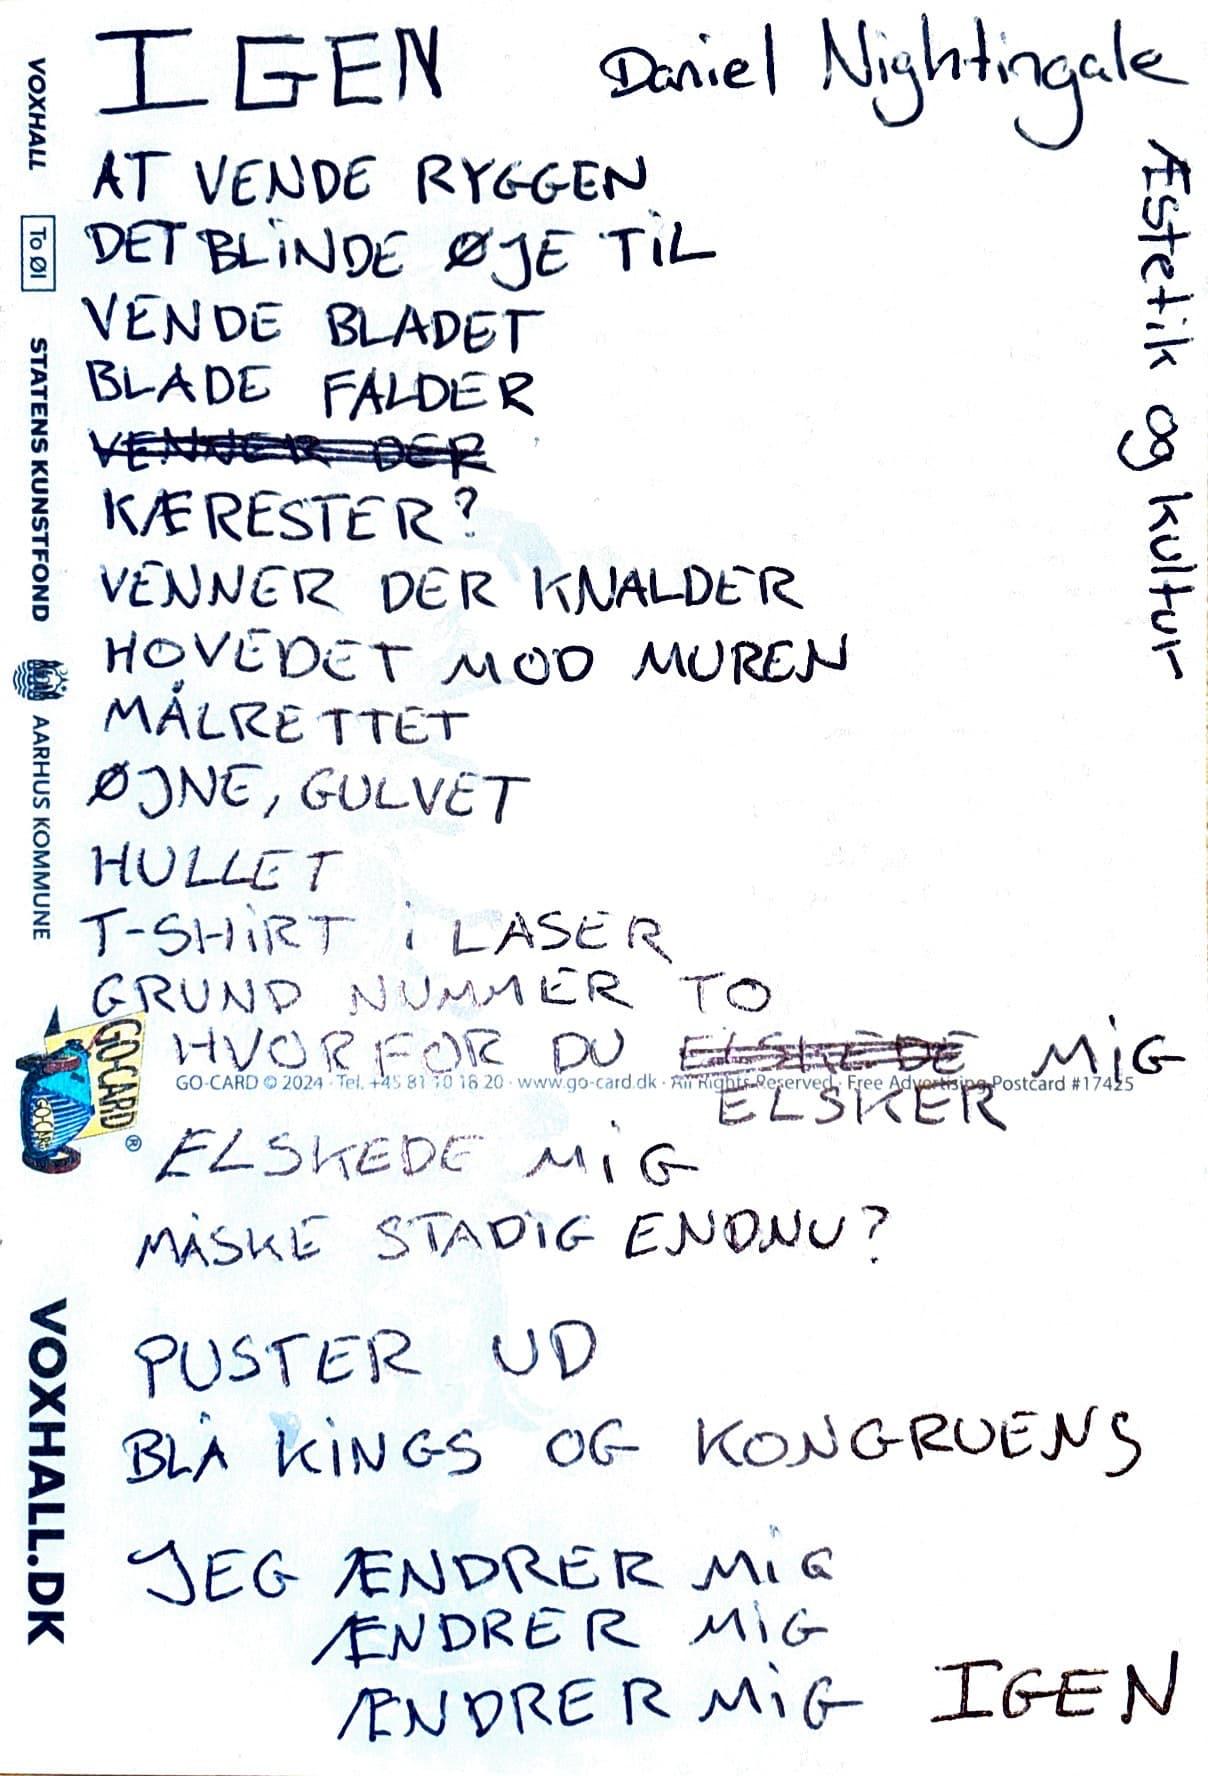 IGEN
Daniel Nightingale
Æstetik og kultur
AT VENDE RYGGEN
DET BLINDE ØJE TIL
VENDE BLADET
BLADE FALDER
VENNER DER
KÆRESTER?
VENNER DER KNALDER
HOVEDET MOD MUREN
MÅLRETTET
ØJNE, GULVET
HULLET
T-SHIRT I LASER
GRUND NUMMER TO
HVORFOR DU ELSKEDE MIG
ELSKER
ELSKEDE MIG
MÅSKE STADIG ENDNU?
PUSTER UD
BLÅ KINGS OG KONGRUENS
JEG ÆNDRER MIG
ÆNDRER MIG
ÆNDRER MIG IGEN
VOXHALL
To Øl
STATENS KUNSTFOND
AARHUS KOMMUNE
GO-CARD
GO-CARD
®
GO-CARD © 2024 · Tel. +45 81 10 16 20 · www.go-card.dk · All Rights Reserved · Free Advertising Postcard #17425
VOXHALL.DK